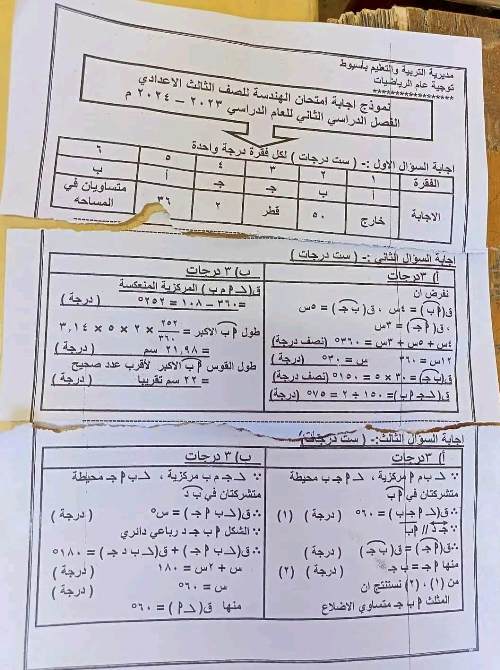 مديرية التربية والتعليم بأسيوط
توجية عام الرياضيات
******************
نموذج اجابة امتحان الهندسة للصف الثالث الاعدادي
الفصل الدراسي الثاني للعام الدراسي ٢٠٢٣ – ٢٠٢٤ م
اجابة السؤال الاول :- ( ست درجات ) لكل فقرة درجة واحدة
الفقرة ١ ٢ ٣ ٤ ٥ ٦
الاجابة أ ب جـ جـ أ ب
خارج ٥٠ قطر ٢ ٣٦ متساويان في المساحه
إجابة السؤال الثاني :- ( ست درجات )
أ) ٣درجات
نفرض ان
ق(م ب) = ٤س ، ق(ب جـ) = ٥س
، ق(م جـ) = ٣س
٤س + ٥س + ٣س = ٣٦٠° (نصف درجة)
١٢س = ٣٦٠ س = ٣٠° (درجة)
ق(ب جـ) = ٣٠ × ٥ = ١٥٠° (نصف درجة)
ق(< جـ م ب) = ١٥٠ ÷ ٢ = ٧٥° (درجة)
ب) ٣ درجات
ق(< م م ب) المركزية المنعكسة
= ٣٦٠ – ١٠٨ = ٢٥٢° ( درجة )
طول م ب الاكبر = ٢٥٢/٣٦٠ × ٢ × ٥ × ٣,١٤
= ٢١,٩٨ سم ( درجة )
طول القوس م ب الاكبر لأقرب عدد صحيح
= ٢٢ سم تقريبا ( درجة )
اجابة السؤال الثالث:- ( ست درجات)
أ) ٣درجات
∵ < ب م م مركزية ، < م جـ ب محيطة
متشركتان في م ب
∴ق(< م جـ ب) = ٦٠° ( درجة ) (١)
∵ جـ د // م ب
∴ق(م جـ) = ق(ب جـ) ( درجة )
منها م جـ = ب جـ ( درجة ) (٢)
من (١) ، (٢) نستنتج ان
المثلث م ب جـ متساوي الاضلاع
ب) ٣ درجات
∵ < جـ م ب مركزية ، < ب م جـ محيطة
متشركتان في ب د
∴ق(< ب م جـ) = س° ( درجة )
∵ الشكل م ب جـ د رباعي دائري
∴ق(< ب م جـ) + ق(< ب د جـ) = ١٨٠°
س + ٢س = ١٨٠ ( درجة )
س = ٦٠° ( درجة )
منها ق(< م ) = ٦٠°